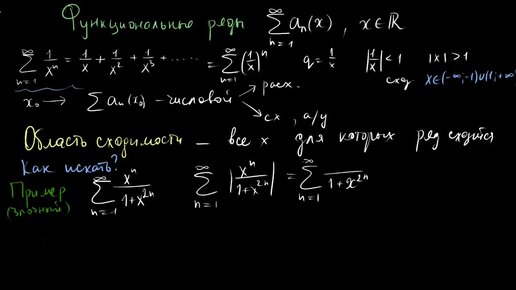 Функциональные ряды $\sum_{n=1}^{\infty} a_n(x)$, $x \in \mathbb{R}$
$\sum_{n=1}^{\infty} \frac{1}{x^n} = \frac{1}{x} + \frac{1}{x^2} + \frac{1}{x^3} + \cdots = \sum_{n=1}^{\infty} \left(\frac{1}{x}\right)^n$ $q = \frac{1}{x}$ $\left|\frac{1}{x}\right| < 1$ $|x| > 1$
сход $x \in (-\infty; -1) \cup (1; +\infty$
$x_0 \longrightarrow \sum a_n(x_0)$ - числовой → расх.
→ сх, а/у
Область сходимости — все x для которых ряд сходится
Как искать?
Пример $\sum_{n=1}^{\infty} \frac{x^n}{1+x^{2n}}$ $\sum_{n=1}^{\infty} \left|\frac{x^n}{1+x^{2n}}\right| = \sum_{n=1}^{\infty} \frac{}{1+x^{2n}}$